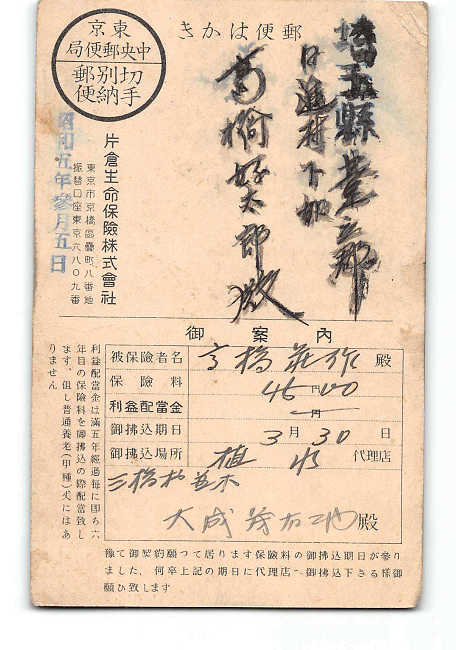 郵便はかき
東京
中央郵便局
切手
別納
郵便
埼玉縣
日進村下加
高橋好太郎殿
片倉生命保險株式會社
東京市京橋區疊町八番地
振替口座東京六八〇九番
昭和五年參月五日
御案內
被保險者名 高橋莊作殿
保險料 46円00
利益配當金 円
御拂込期日 3月30日
御拂込場所 代理店
三橋村並木
殿
利益配當金は滿五年經過每に卽ち六
年目の保險料を御拂込の際配當致し
ます、但し普通養老(甲種)式にはあ
りません
豫て御契約願つて居ります保險料の御拂込期日が參り
ました、何卒上記の期日に代理店へ御拂込下さる樣御
願ひ致します